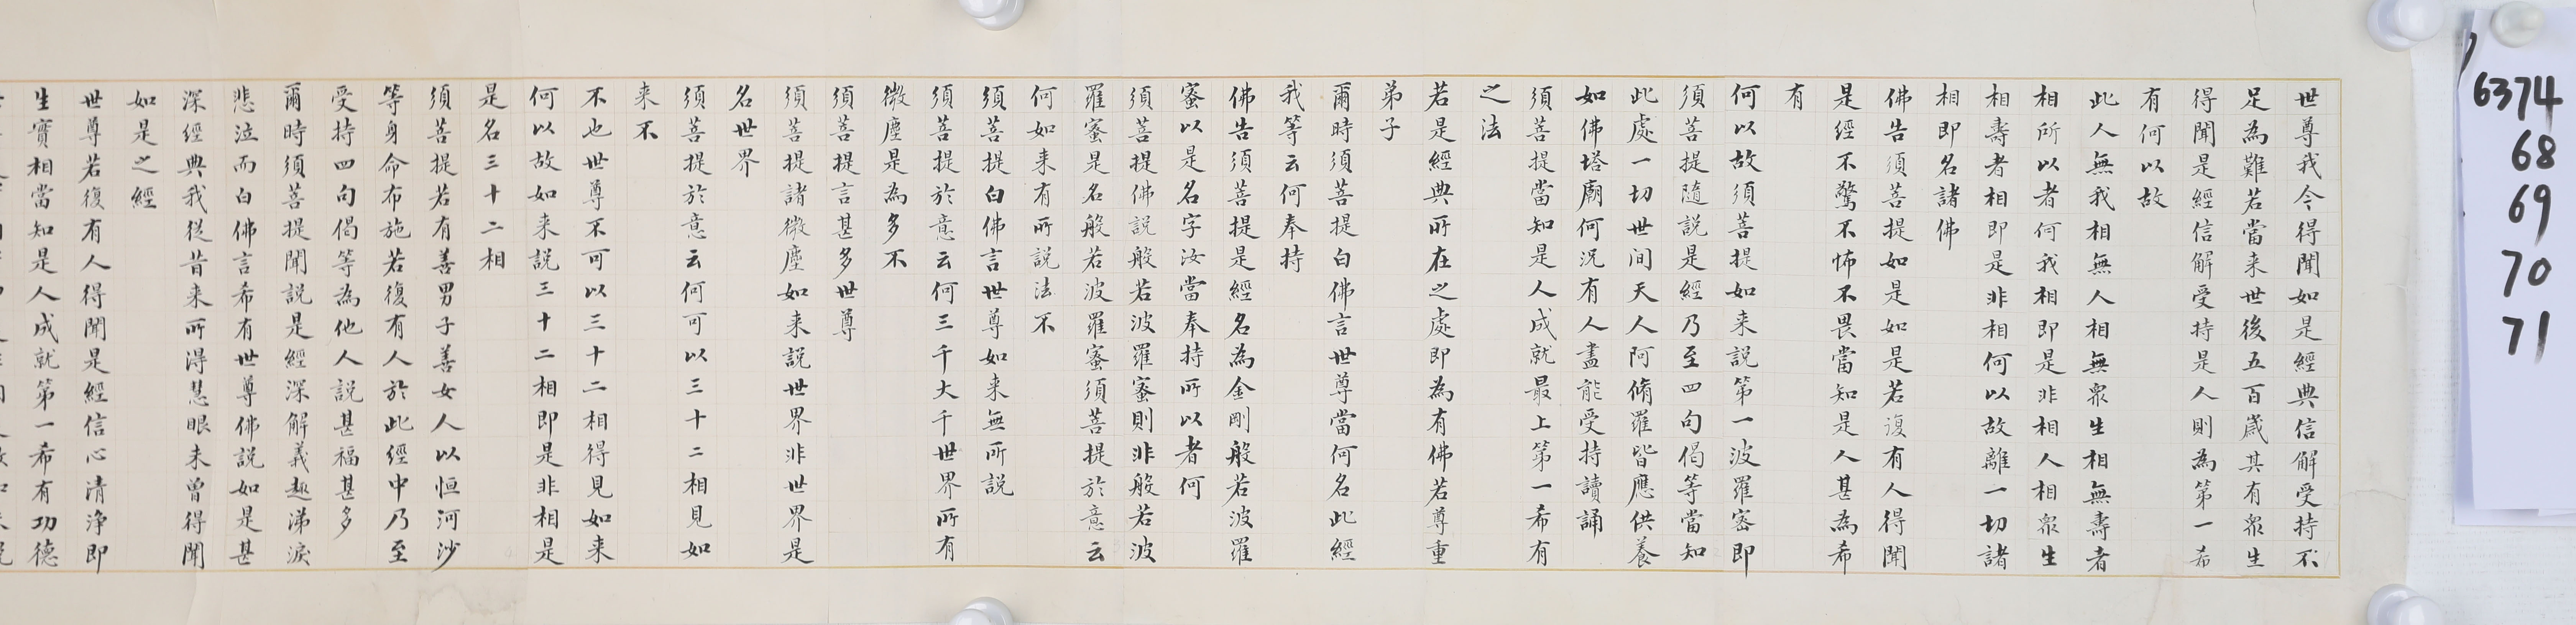 世尊我今得聞如是經典信解受持不
足為難若當来世後五百歲其有眾生
得聞是經信解受持是人則為第一希
有何以故
此人無我相無人相無眾生相無壽者
相所以者何我相即是非相人相眾生
相壽者相即是非相何以故離一切諸
相即名諸佛
佛告須菩提如是如是若復有人得聞
是經不驚不怖不畏當知是人甚為希
有
何以故須菩提如来說第一波羅密即
須菩提隨說是經乃至四句偈等當知
此處一切世间天人阿脩羅皆應供養
如佛塔廟何況有人盡能受持讀誦
須菩提當知是人成就最上第一希有
之法
若是經典所在之處即為有佛若尊重
弟子
爾時須菩提白佛言世尊當何名此經
我等云何奉持
佛告須菩提是經名為金剛般若波羅
蜜以是名字汝當奉持所以者何
須菩提佛說般若波羅蜜則非般若波
羅蜜是名般若波羅蜜須菩提於意云
何如来有所說法不
須菩提白佛言世尊如来無所說
須菩提於意云何三千大千世界所有
微塵是為多不
須菩提言甚多世尊
須菩提諸微塵如来說世界非世界是
名世界
須菩提於意云何可以三十二相見如
来不
不也世尊不可以三十二相得見如来
何以故如来說三十二相即是非相是
是名三十二相
須菩提若有善男子善女人以恒河沙
等身命布施若復有人於此經中乃至
受持四句偈等為他人說甚福甚多
爾時須菩提聞說是經深解義趣涕淚
悲泣而白佛言希有世尊佛說如是甚
深經典我從昔来所得慧眼未曾得聞
如是之經
世尊若復有人得聞是經信心清淨即
生實相當知是人成就第一希有功德
6374
68
69
70
71